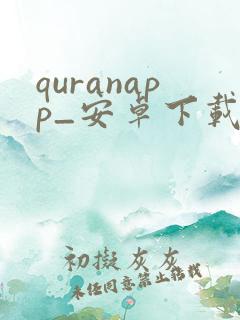 quranap
p_安卓下載
初擬灰灰
未经同意禁止转载